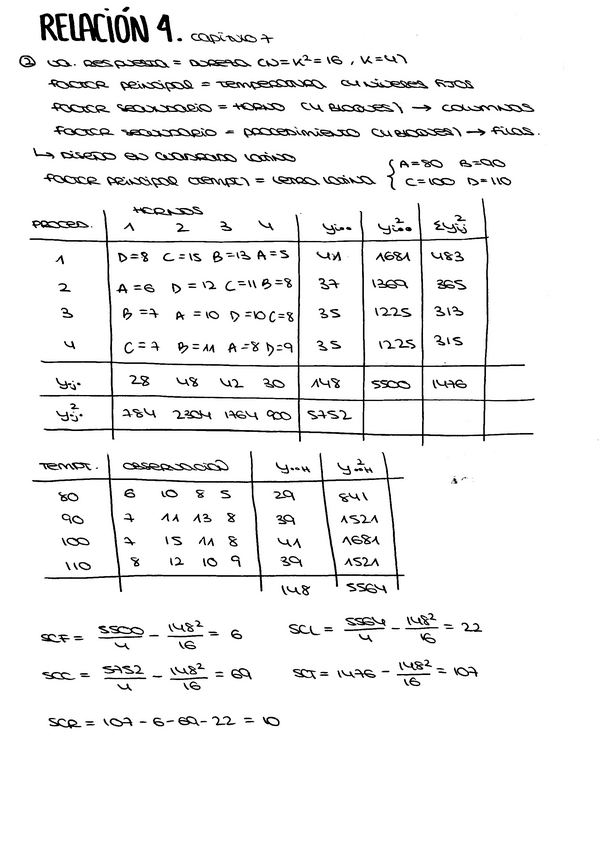 RELACIÓN 4. CAPÍTULO 7
② VA. RESPUESTA = DUREZA (N=K²=16, K=4)
FACTOR PRINCIPAL = TEMPERATURA (4 NIVELES FIJOS
FACTOR SECUNDARIO = HORNO (4 BLOQUES) → COLUMNAS
FACTOR SECUNDARIO = PROCEDIMIENTO (4 BLOQUES) → FILAS.
↳ DISEÑO EN CUADRADO LATINO
FACTOR PRINCIPAL (TEMPT) = LETRA LATINA { A=80 B=90
C=100 D=110
HORNOS
PROCED. 1 2 3 4 yi.. yi..² Σyij²
1 D=8 C=15 B=13 A=5 41 1681 483
2 A=6 D=12 C=11 B=8 37 1369 365
3 B=7 A=10 D=10 C=8 35 1225 313
4 C=7 B=11 A=8 D=9 35 1225 315
y.j. 28 48 42 30 148 5500 1476
y.j.² 784 2304 1764 900 5752
TEMPT. OBSERVACIÓN y..H y..H²
80 6 10 8 5 29 841
90 7 11 13 8 39 1521
100 7 15 11 8 41 1681
110 8 12 10 9 39 1521
148 5564
SCF = 5500/4 - 148²/16 = 6 SCL = 5564/4 - 148²/16 = 22
SCC = 5752/4 - 148²/16 = 69 SCT = 1476 - 148²/16 = 107
SCR = 107 - 6 - 69 - 22 = 10